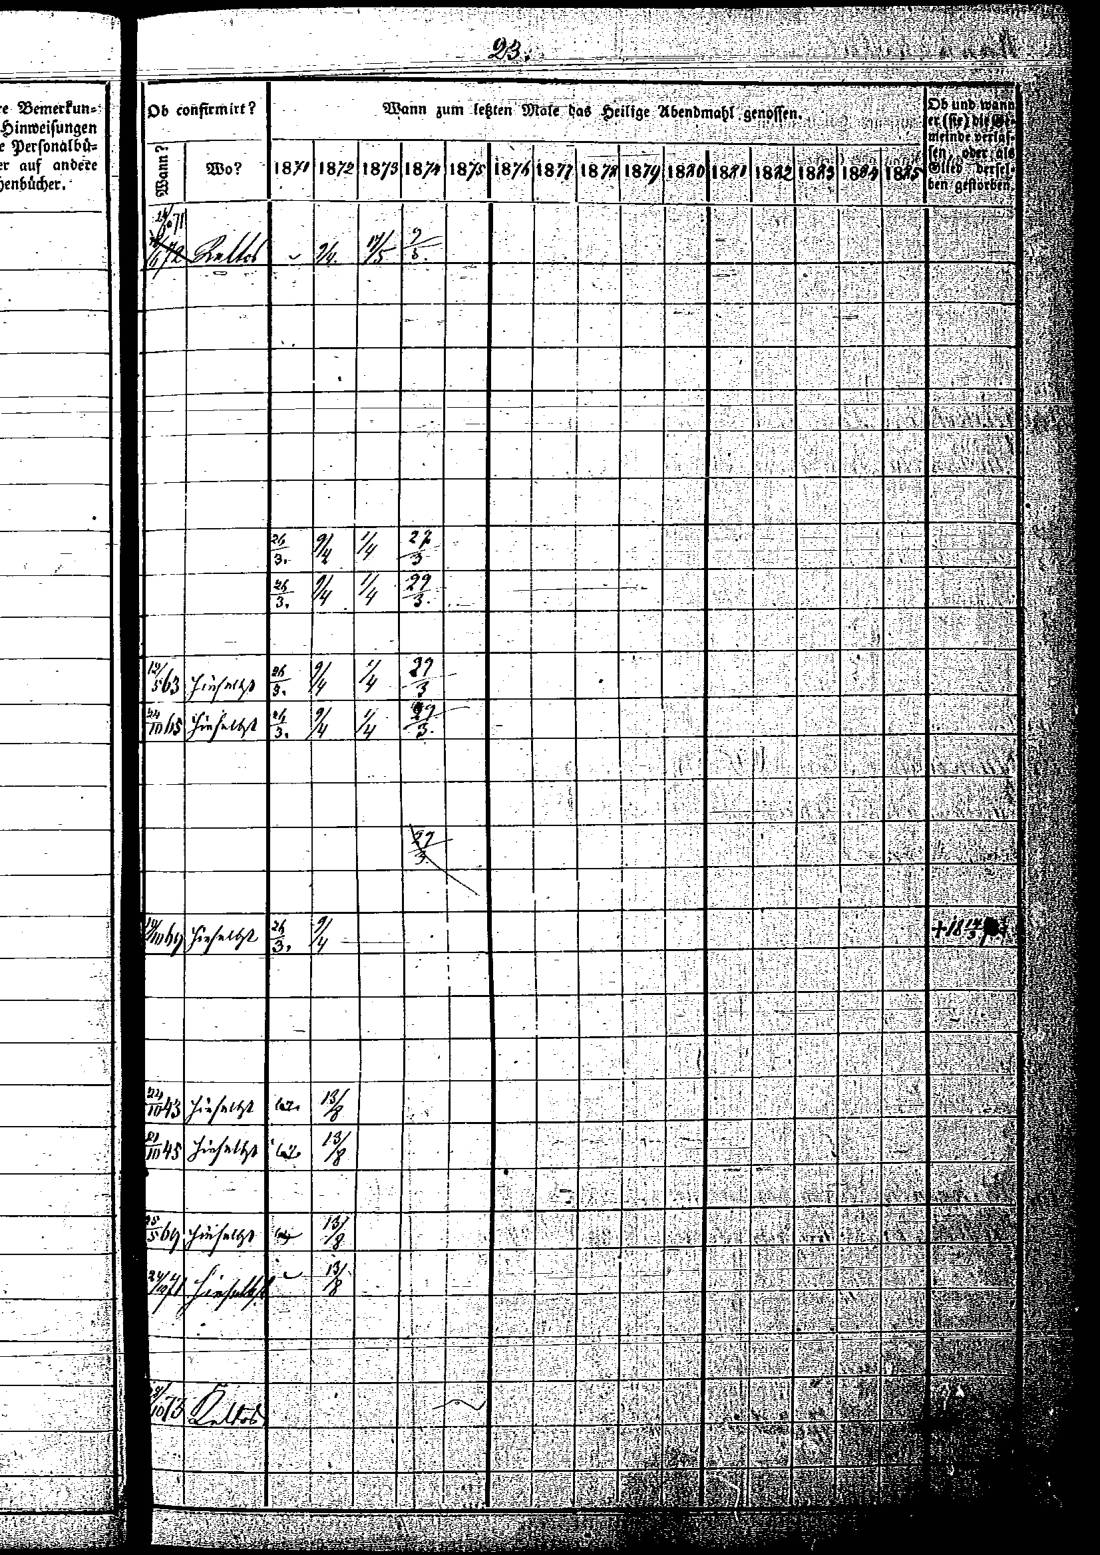 23.
re Bemerkun-
Hinweisungen
e Personalbü-
er auf andere
henbücher.
Ob confirmirt?
Wann zum letzten Male das Heilige Abendmahl genossen.
Ob und wann
er (sie) die Ge-
meinde verlas-
sen, oder als
Glied dersel-
ben gestorben.
Wann? Wo? 1871 1872 1873 1874 1875 1876 1877 1878 1879 1880 1881 1882 1883 1884 1885
71
72 Keltos 9/4. 17/5 9/6.
26/3. 9/4 1/4 27/3
26/3. 9/4 1/4 29/3.
19/5 63 hieselbst 26/3. 9/4 1/4 27/3
24/10 65 hieselbst 26/3. 9/4 1/4 29/3.
27/3
19/10 69 hieselbst 26/3. 9/4 + 18
24/10 43 hieselbst 13/8
21/10 45 hieselbst 13/8
25/5 69 hieselbst 13/8
24/10 71 hieselbst 13/8
10 73 Keltos